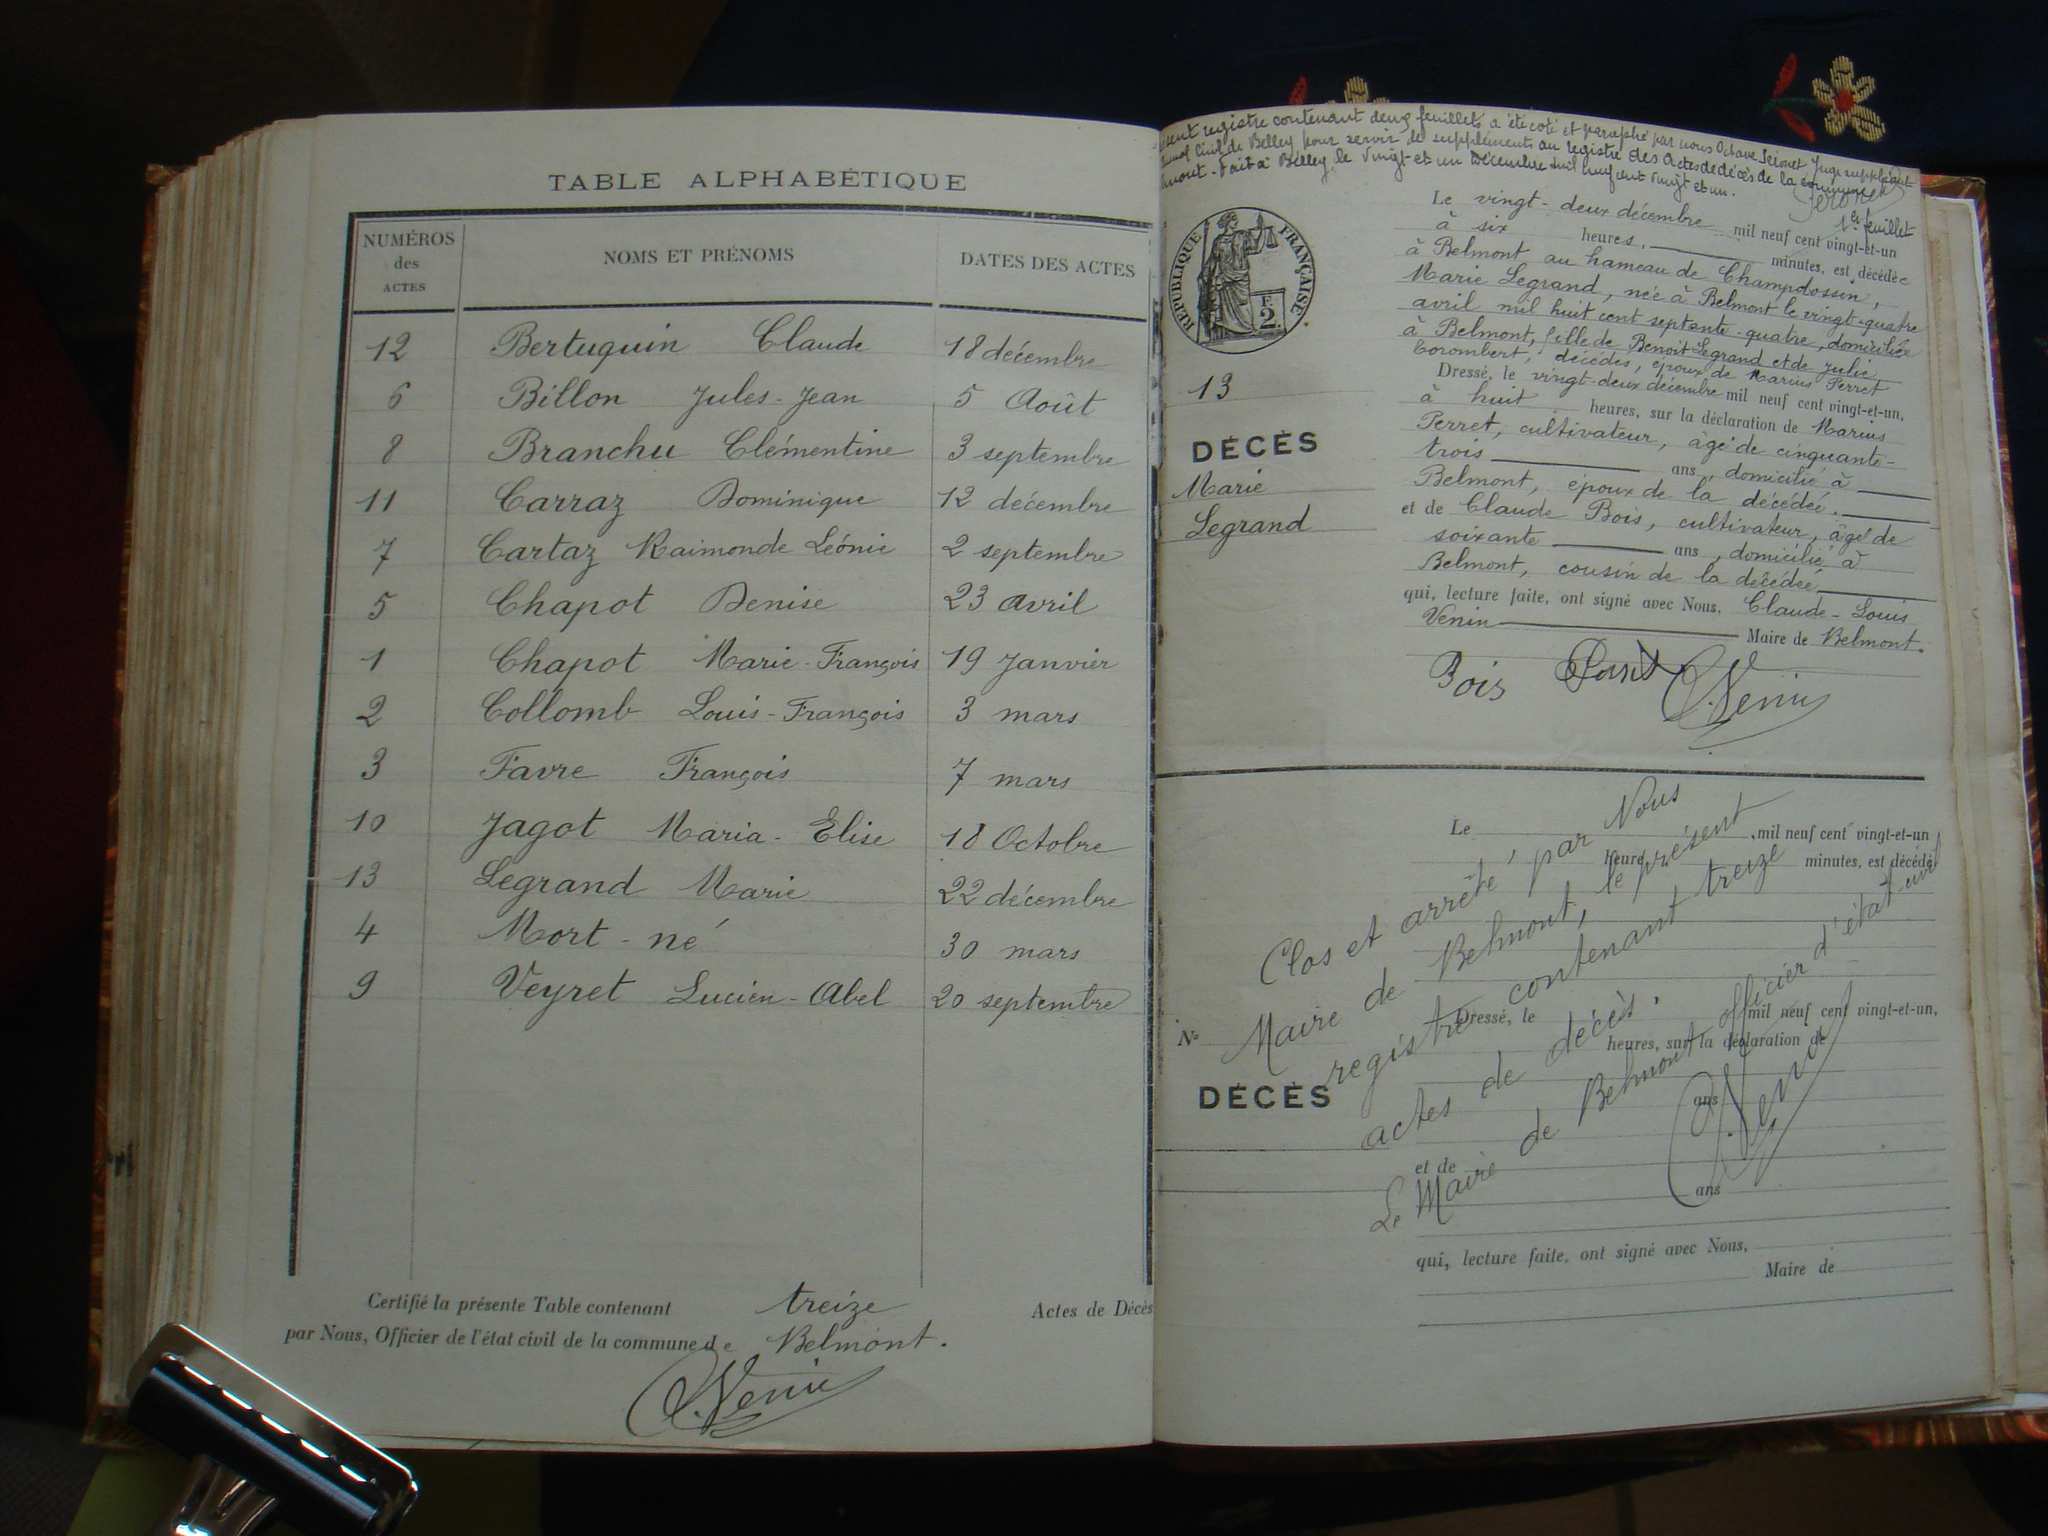 TABLE ALPHABÉTIQUE
NUMÉROS des ACTES
NOMS ET PRÉNOMS
DATES DES ACTES
12 Bertuquin Claude 18 décembre
6 Billon Jules-Jean 5 Août
8 Branchu Clémentine 3 septembre
11 Carraz Dominique 12 décembre
7 Cartaz Raimonde Léonie 2 septembre
5 Chapot Denise 23 avril
1 Chapot Marie-François 19 Janvier
2 Collomb Louis-François 3 mars
3 Favre François 7 mars
10 Jagot Maria-Elise 18 Octobre
13 Legrand Marie 22 décembre
4 Mort-né 30 mars
9 Veyret Lucien-Abel 20 septembre
Certifié la présente Table contenant treize Actes de Décès
par Nous, Officier de l'état civil de la commune de Belmont.
C. Venin
registre contenant deux feuillets a été coté et paraphé par nous Octave Juge suppléant
Civil de Belley pour servir de suppléments au registre des Actes de décès de la commune
Fait à Belley, le vingt et un Décembre mil neuf cent vingt et un.
1er feuillet
RÉPUBLIQUE FRANÇAISE
F. 2
13
DÉCÈS
Marie
Legrand
Le vingt-deux décembre mil neuf cent vingt-et-un
à six heures, minutes, est décédée
à Belmont au hameau de Champdossin,
Marie Legrand, née à Belmont le vingt-quatre
avril mil huit cent septante-quatre, domiciliée
à Belmont, fille de Benoit Legrand et de Julie
Corombert, décédés, épouse de Marius Perret
Dressé, le vingt-deux décembre mil neuf cent vingt-et-un,
à huit heures, sur la déclaration de Marius
Perret, cultivateur, âgé de cinquante-
trois ans, domicilié à
Belmont, époux de la décédée.
et de Claude Bois, cultivateur, âgé de
soixante ans, domicilié à
Belmont, cousin de la décédée
qui, lecture faite, ont signé avec Nous, Claude-Louis
Venin Maire de Belmont.
Bois Perret C. Venin
Le , mil neuf cent vingt-et-un
heure minutes, est décédé
Dressé, le mil neuf cent vingt-et-un,
heures, sur la déclaration de
No
DÉCÈS
ans
et de
ans
qui, lecture faite, ont signé avec Nous,
Maire de
Clos et arrêté par Nous
Maire de Belmont, le présent
registre contenant treize
actes de décès.
Le Maire de Belmont officier d'état-civil
C. Venin